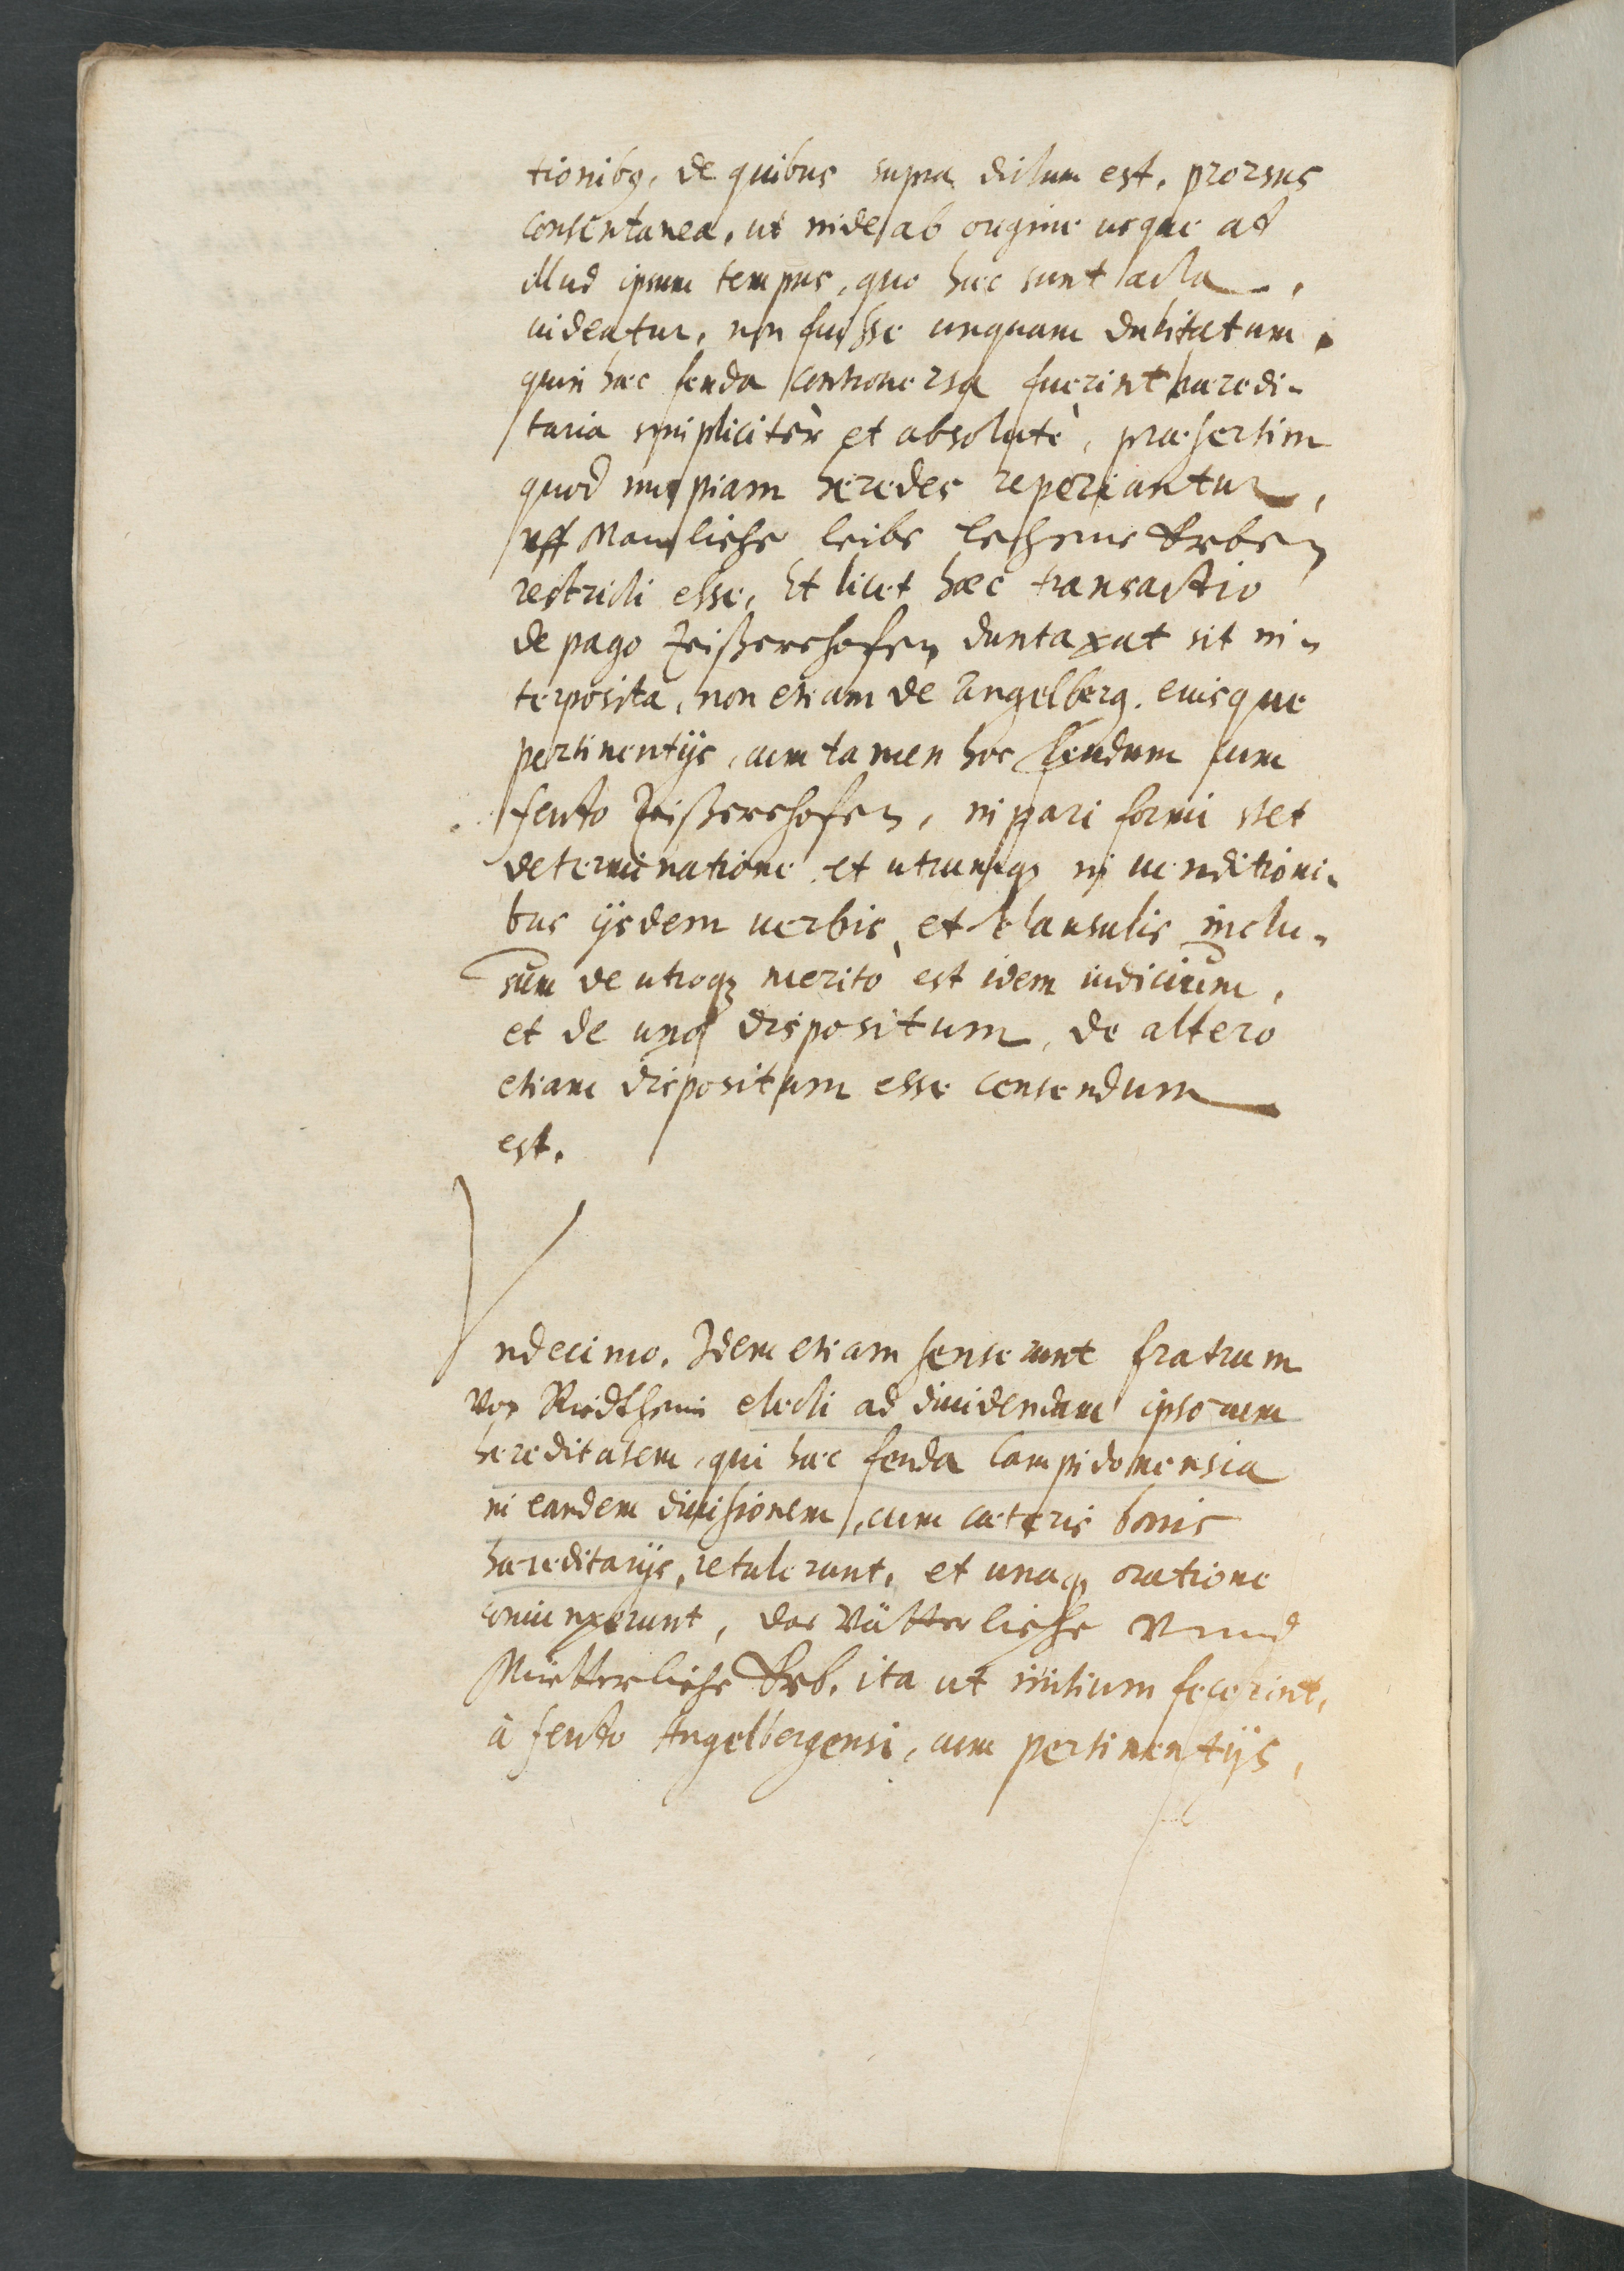 tionibꝰ, de quibus supra dictum est, prorsus
consentanea, ut inde ab origine usque ad
illud ipsum tempus, quo hæc sunt acta,
uideatur, non fuisse unquam dubitatum,
quin hæc feuda controuersa fuerint hæredi-
taria simplicitèr et absolutè, præsertim
quod nuspiam heredes reperiantur,
uff Manliche leibs lehens Erben
restricti esse, Et licet hæc transactio
de pago Zeißershofen duntaxat sit in-
terposita, non etiam de Angelberg. eiusque
pertinentijs, cum tamen hoc feudum cum
feudo Zeißershofen, in pari formæ siet
determinatione et utrumqꝫ in uenditioni-
bus ijsdem uerbis, et clausulis inclu-
sum de utroqꝫ meritò est idem iudicium,
et de uno dispositum, de altero
etiam dispositum esse censendum
est.
Vndecimo. Idem etiam senserunt fratrum
von Riedtheim electi ad diuidendam ipsorum
hereditatem, qui hæc feuda Campidonensia
in eandem diuisionem, cum cæteris bonis
hæreditarijs, retulerunt, et unaqꝫ oratione
coniunxerunt, das Vätterliche Vnnd
Müetterliche Erb. ita ut initium fecerint,
à feudo Angelbergensi, cum pertinentijs,